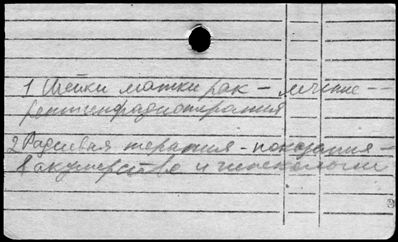 1 Шейки матки рак - лечение -
рентгенорадиотерапия
2 Радиевая терапия - показания -
в акушерстве и гинекологии